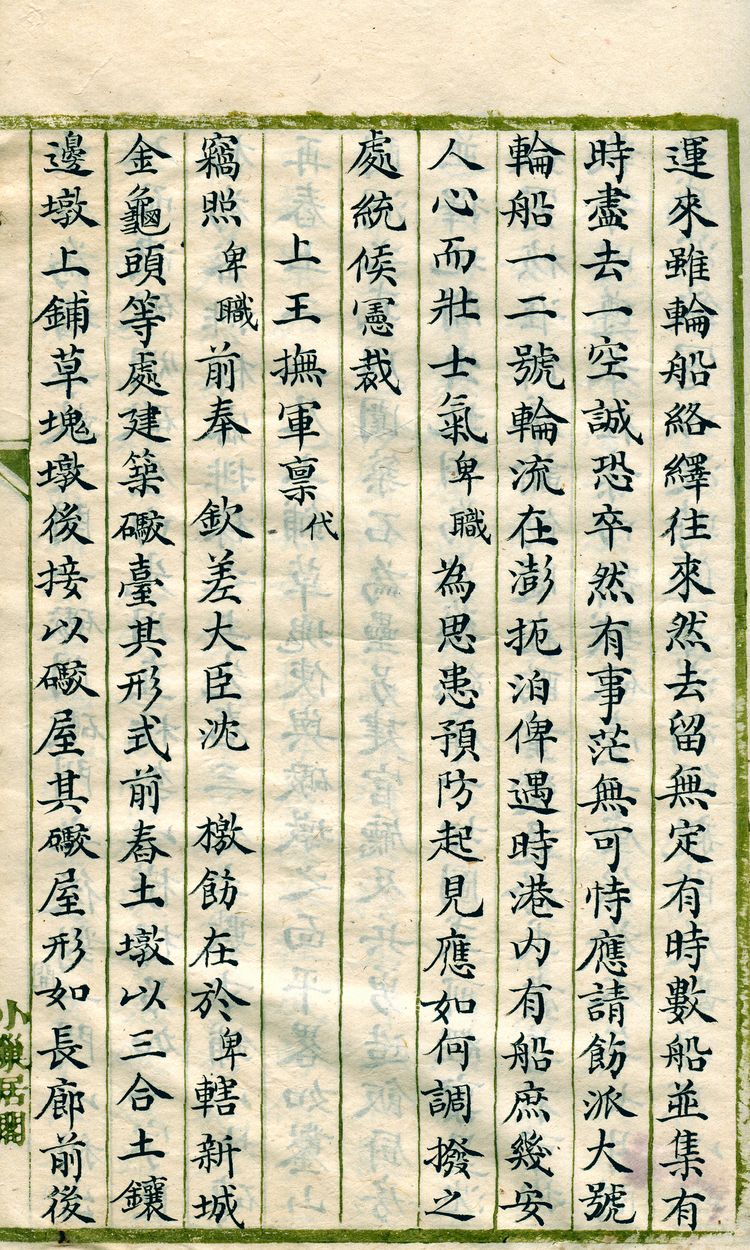 運來雖輪船絡繹往來然去留無定有時數船並集有
時盡去一空誠恐卒然有事茫無可恃應請飭派大號
輪船一二號輪流在澎扼泊俾遇時港內有船庶幾安
人心而壯士氣卑職為思患預防起見應如何調撥之
處統候憲裁
上王撫軍禀代
竊照卑職前奉 欽差大臣沈 檄飭在於卑轄新城
金龜頭等處建築礮臺其形式前舂土墩以三合土鑲
邊墩上鋪草塊墩後接以礮屋其礮屋形如長廊前後
小巢居閣